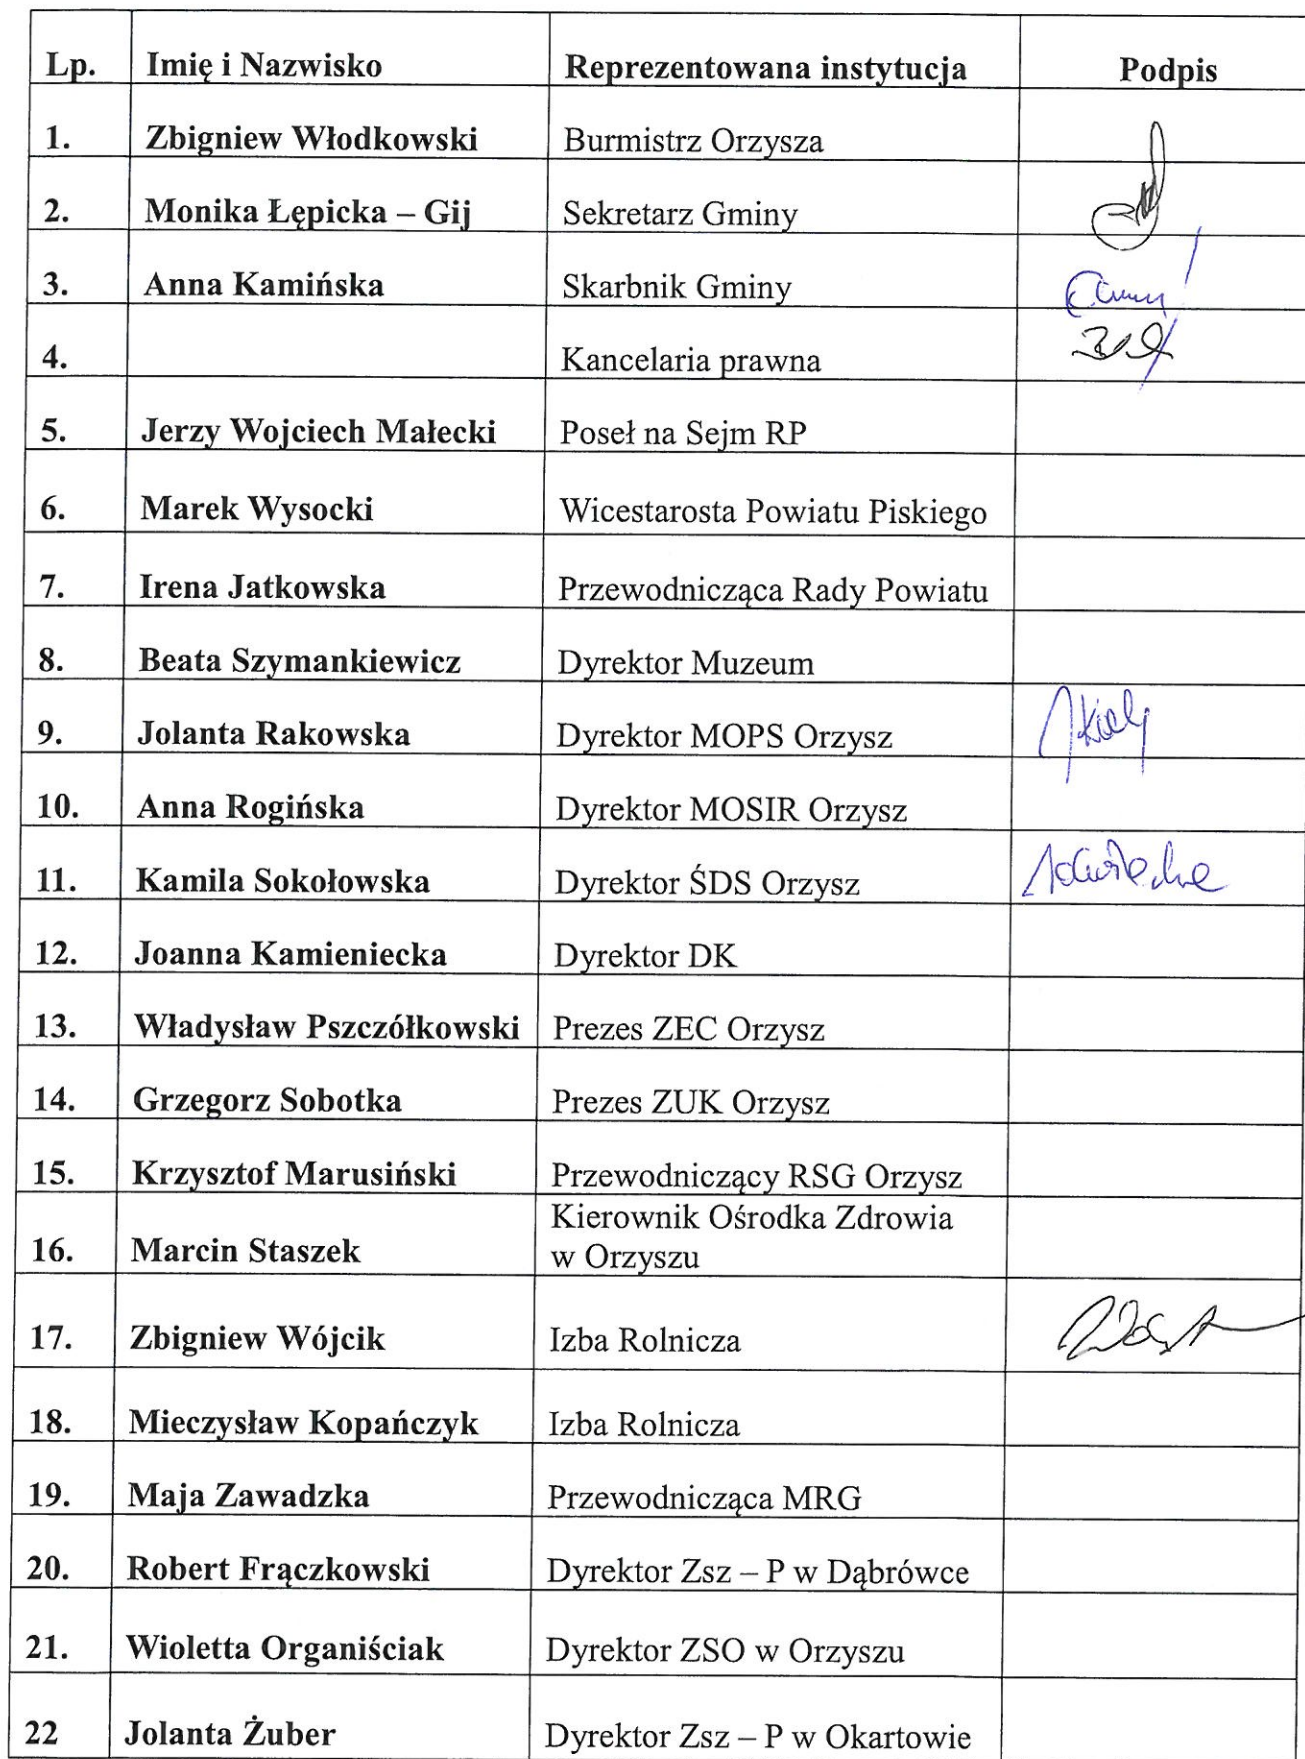 Lp. Imię i Nazwisko Reprezentowana instytucja Podpis
1. Zbigniew Włodkowski Burmistrz Orzysza
2. Monika Łępicka – Gij Sekretarz Gminy
3. Anna Kamińska Skarbnik Gminy
4. Kancelaria prawna
5. Jerzy Wojciech Małecki Poseł na Sejm RP
6. Marek Wysocki Wicestarosta Powiatu Piskiego
7. Irena Jatkowska Przewodnicząca Rady Powiatu
8. Beata Szymankiewicz Dyrektor Muzeum
9. Jolanta Rakowska Dyrektor MOPS Orzysz
10. Anna Rogińska Dyrektor MOSIR Orzysz
11. Kamila Sokołowska Dyrektor ŚDS Orzysz
12. Joanna Kamieniecka Dyrektor DK
13. Władysław Pszczółkowski Prezes ZEC Orzysz
14. Grzegorz Sobotka Prezes ZUK Orzysz
15. Krzysztof Marusiński Przewodniczący RSG Orzysz
16. Marcin Staszek Kierownik Ośrodka Zdrowia
w Orzyszu
17. Zbigniew Wójcik Izba Rolnicza
18. Mieczysław Kopańczyk Izba Rolnicza
19. Maja Zawadzka Przewodnicząca MRG
20. Robert Frączkowski Dyrektor Zsz – P w Dąbrówce
21. Wioletta Organiściak Dyrektor ZSO w Orzyszu
22 Jolanta Żuber Dyrektor Zsz – P w Okartowie